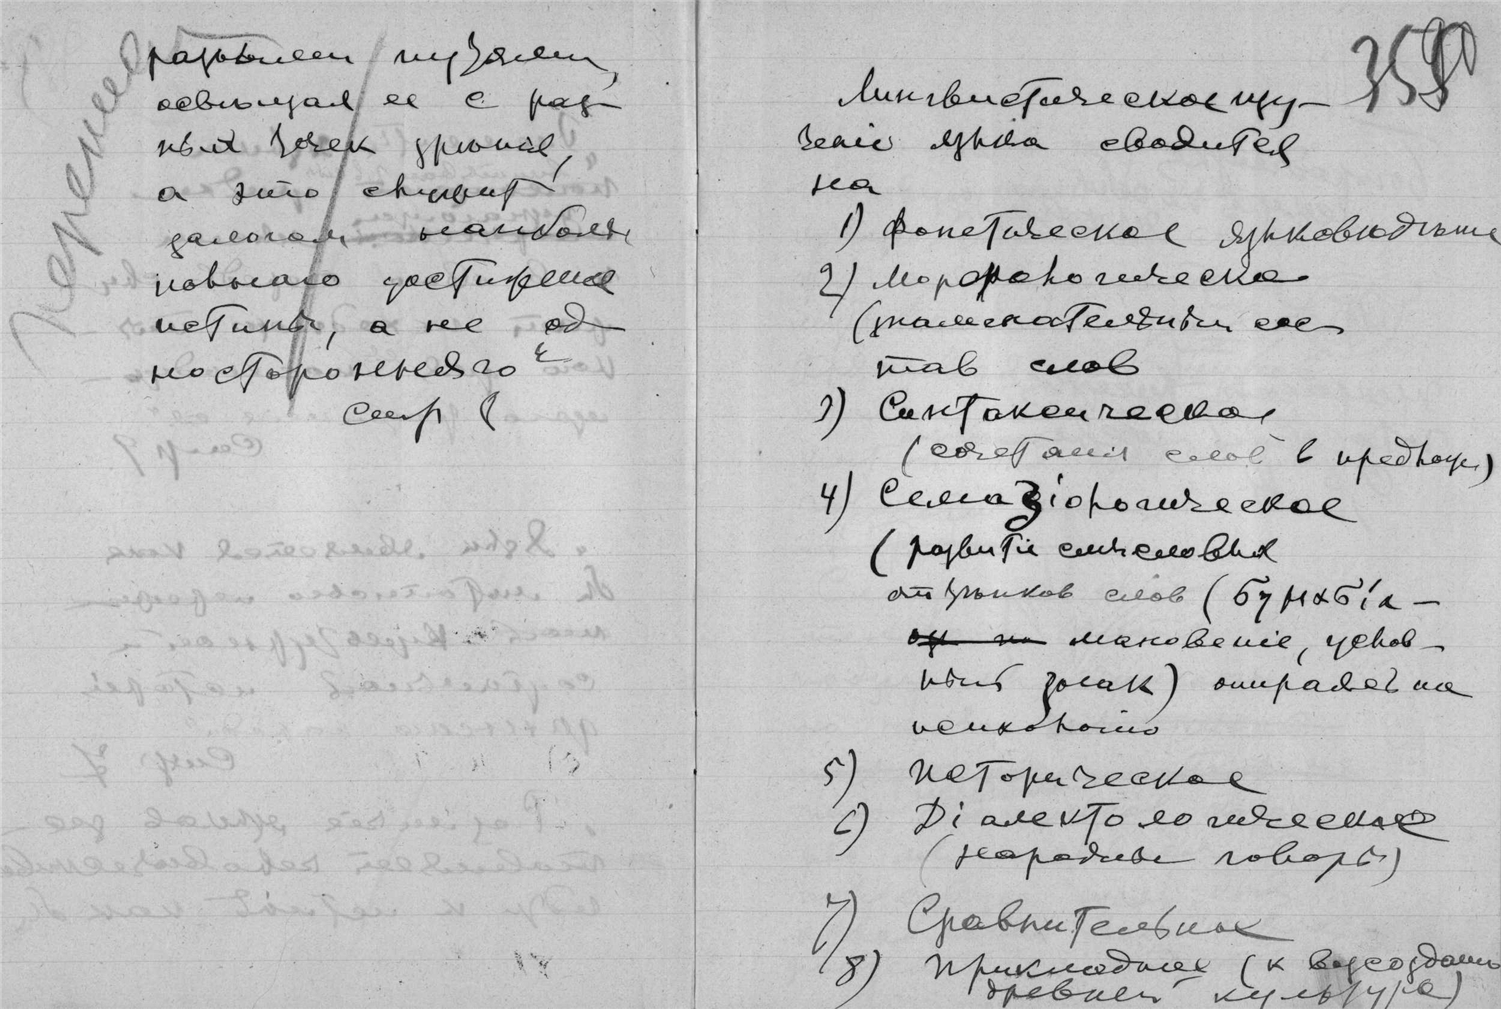 разными путями,
освещая ея с раз-
ных точек зрения,
а это служит
залогом наиболь
полного достижения
истины, а не од-
ностороннего
Перенес
358
Лингвистическое изу-
чение языка сводится
на
1) Фонетическое языковедение
2) Морфологическое
(знаменательный сос
тав слов
3) Синтаксическое
(сочетания слов в предлож)
4) Семазіологическое
(развитіе смысловых
оттѣнков слов (
мановение, услов-
ный знак) опираясь на
психологію
5) Историческое
6) Діалектологическое
(народные говоры)
7) Сравнительное
8) Прикладное (к возсозданию
древней культуры)